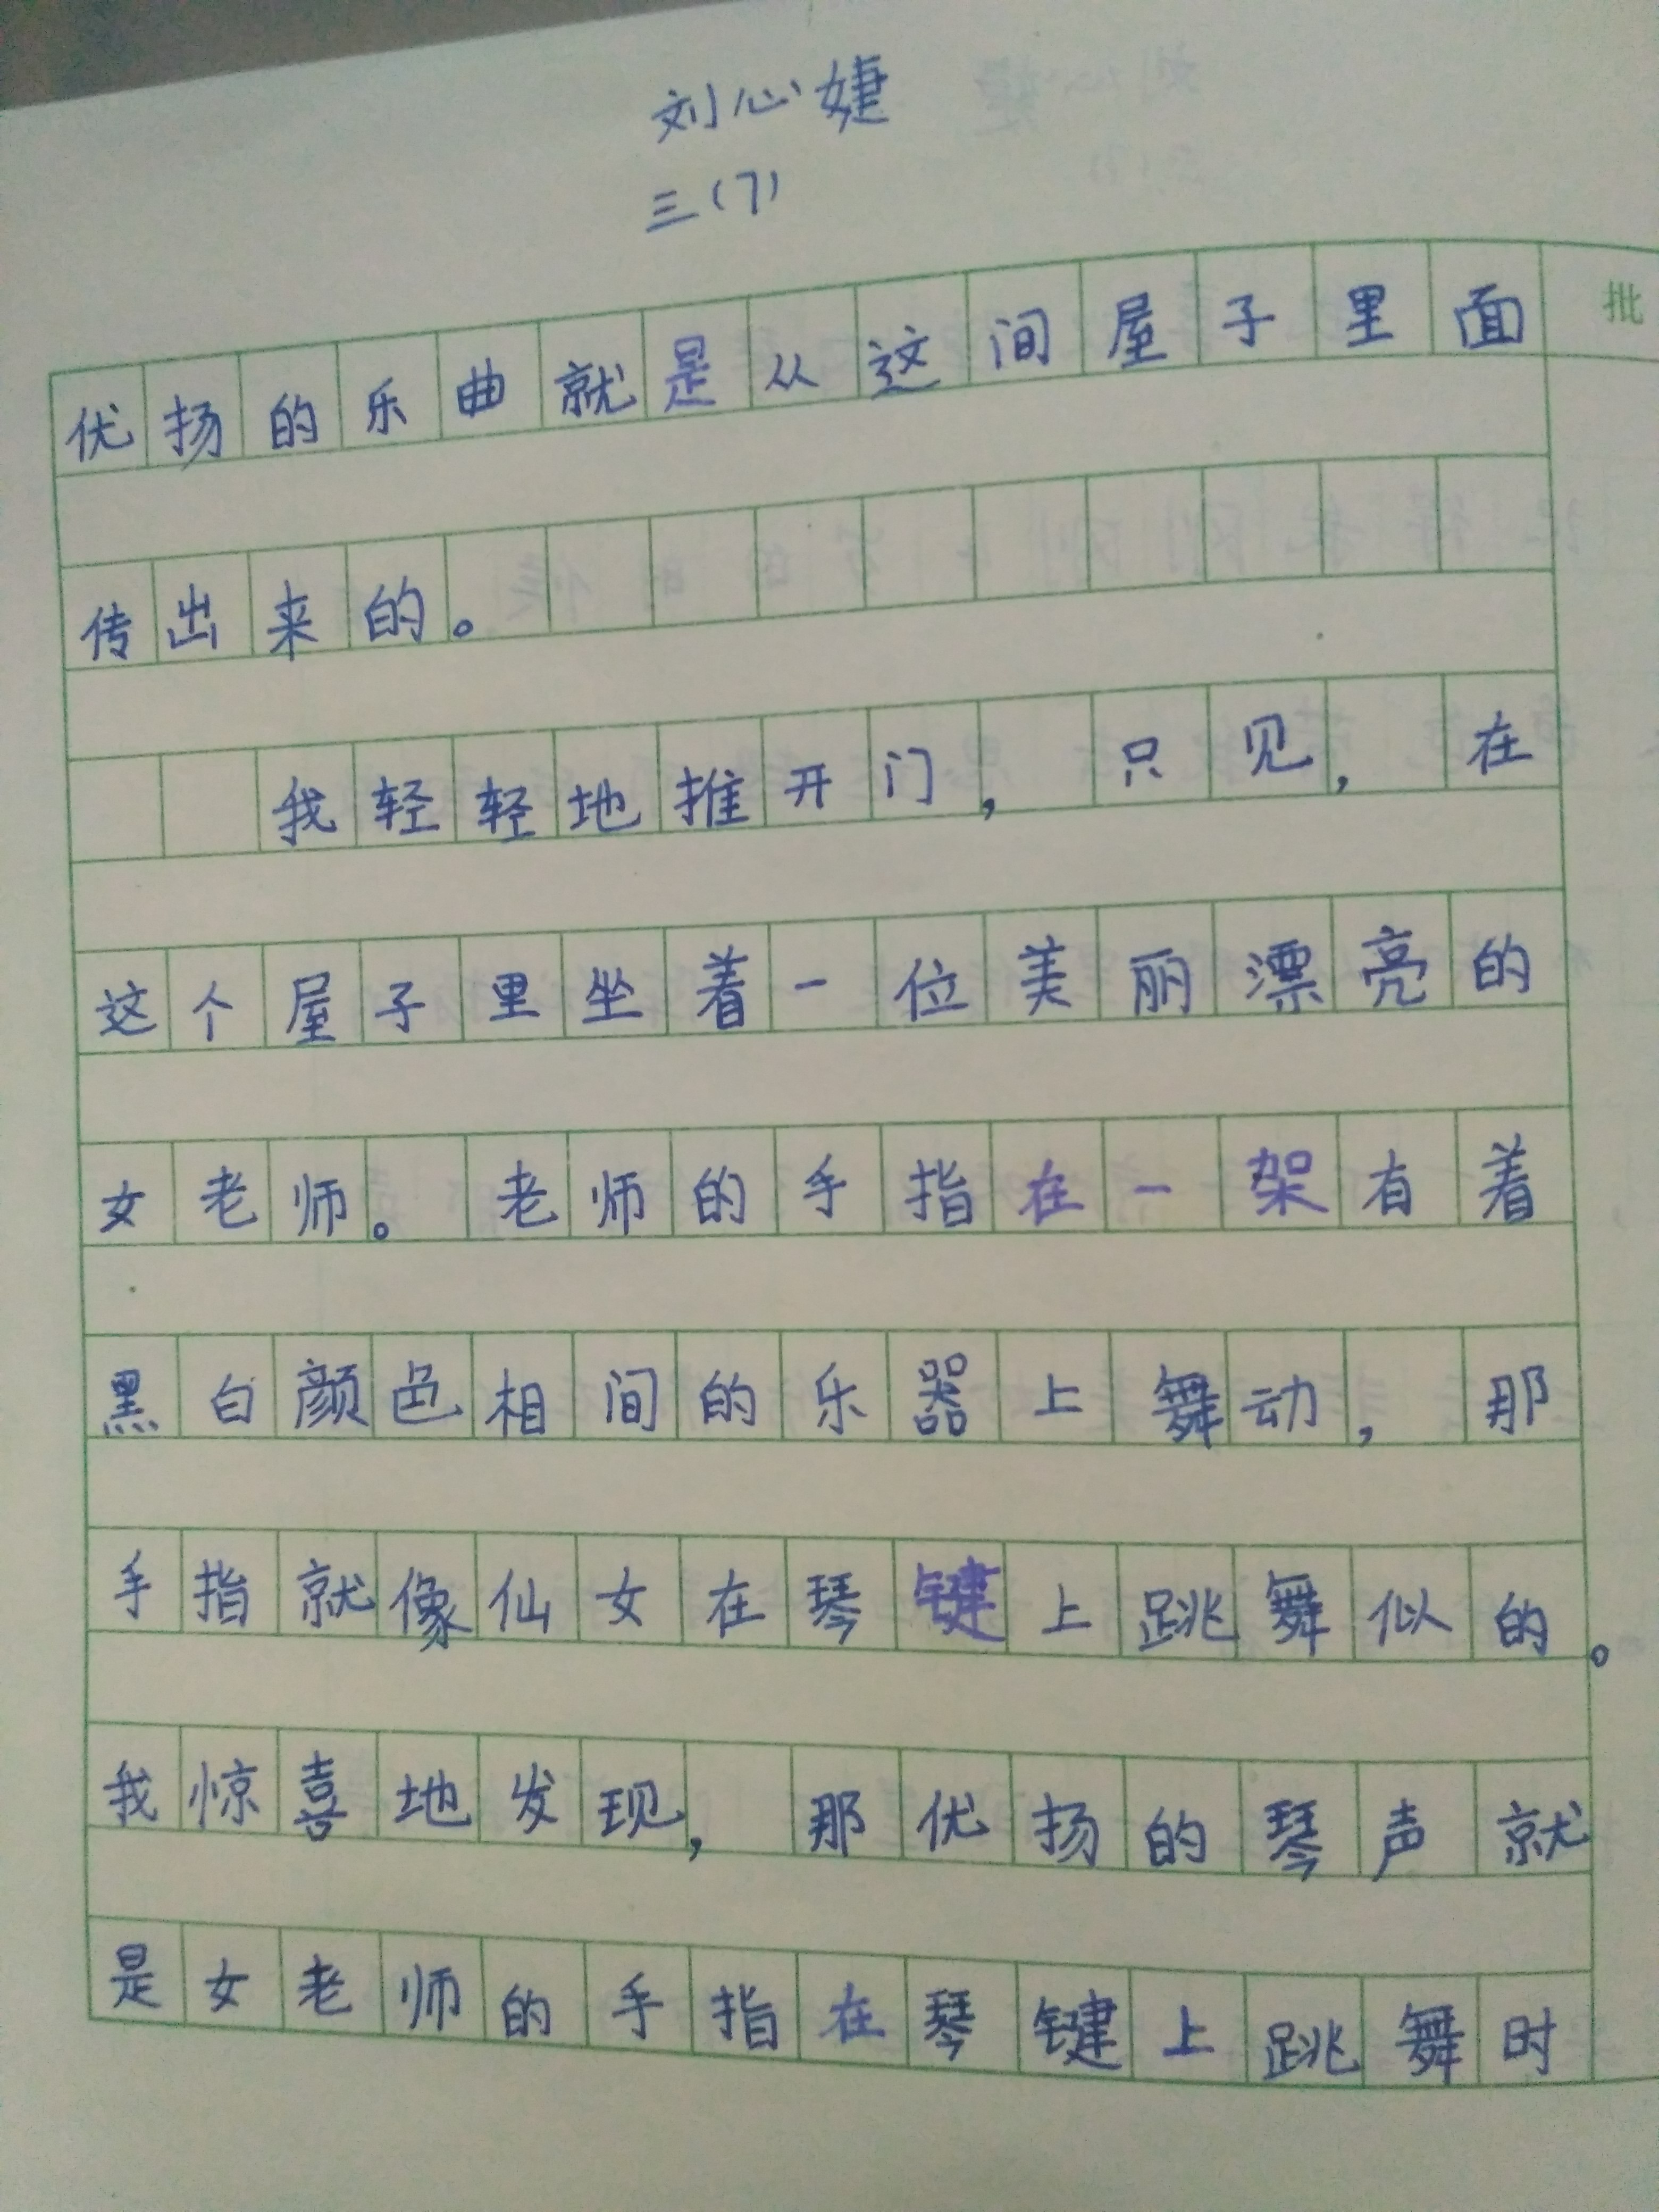 刘心婕
三(7)
批
优扬的乐曲就是从这间屋子里面
传出来的。
我轻轻地推开门,只见,在
这个屋子里坐着一位美丽漂亮的
女老师。老师的手指在一架有着
黑白颜色相间的乐器上舞动,那
手指就像仙女在琴键上跳舞似的。
我惊喜地发现,那优扬的琴声就
是女老师的手指在琴键上跳舞时